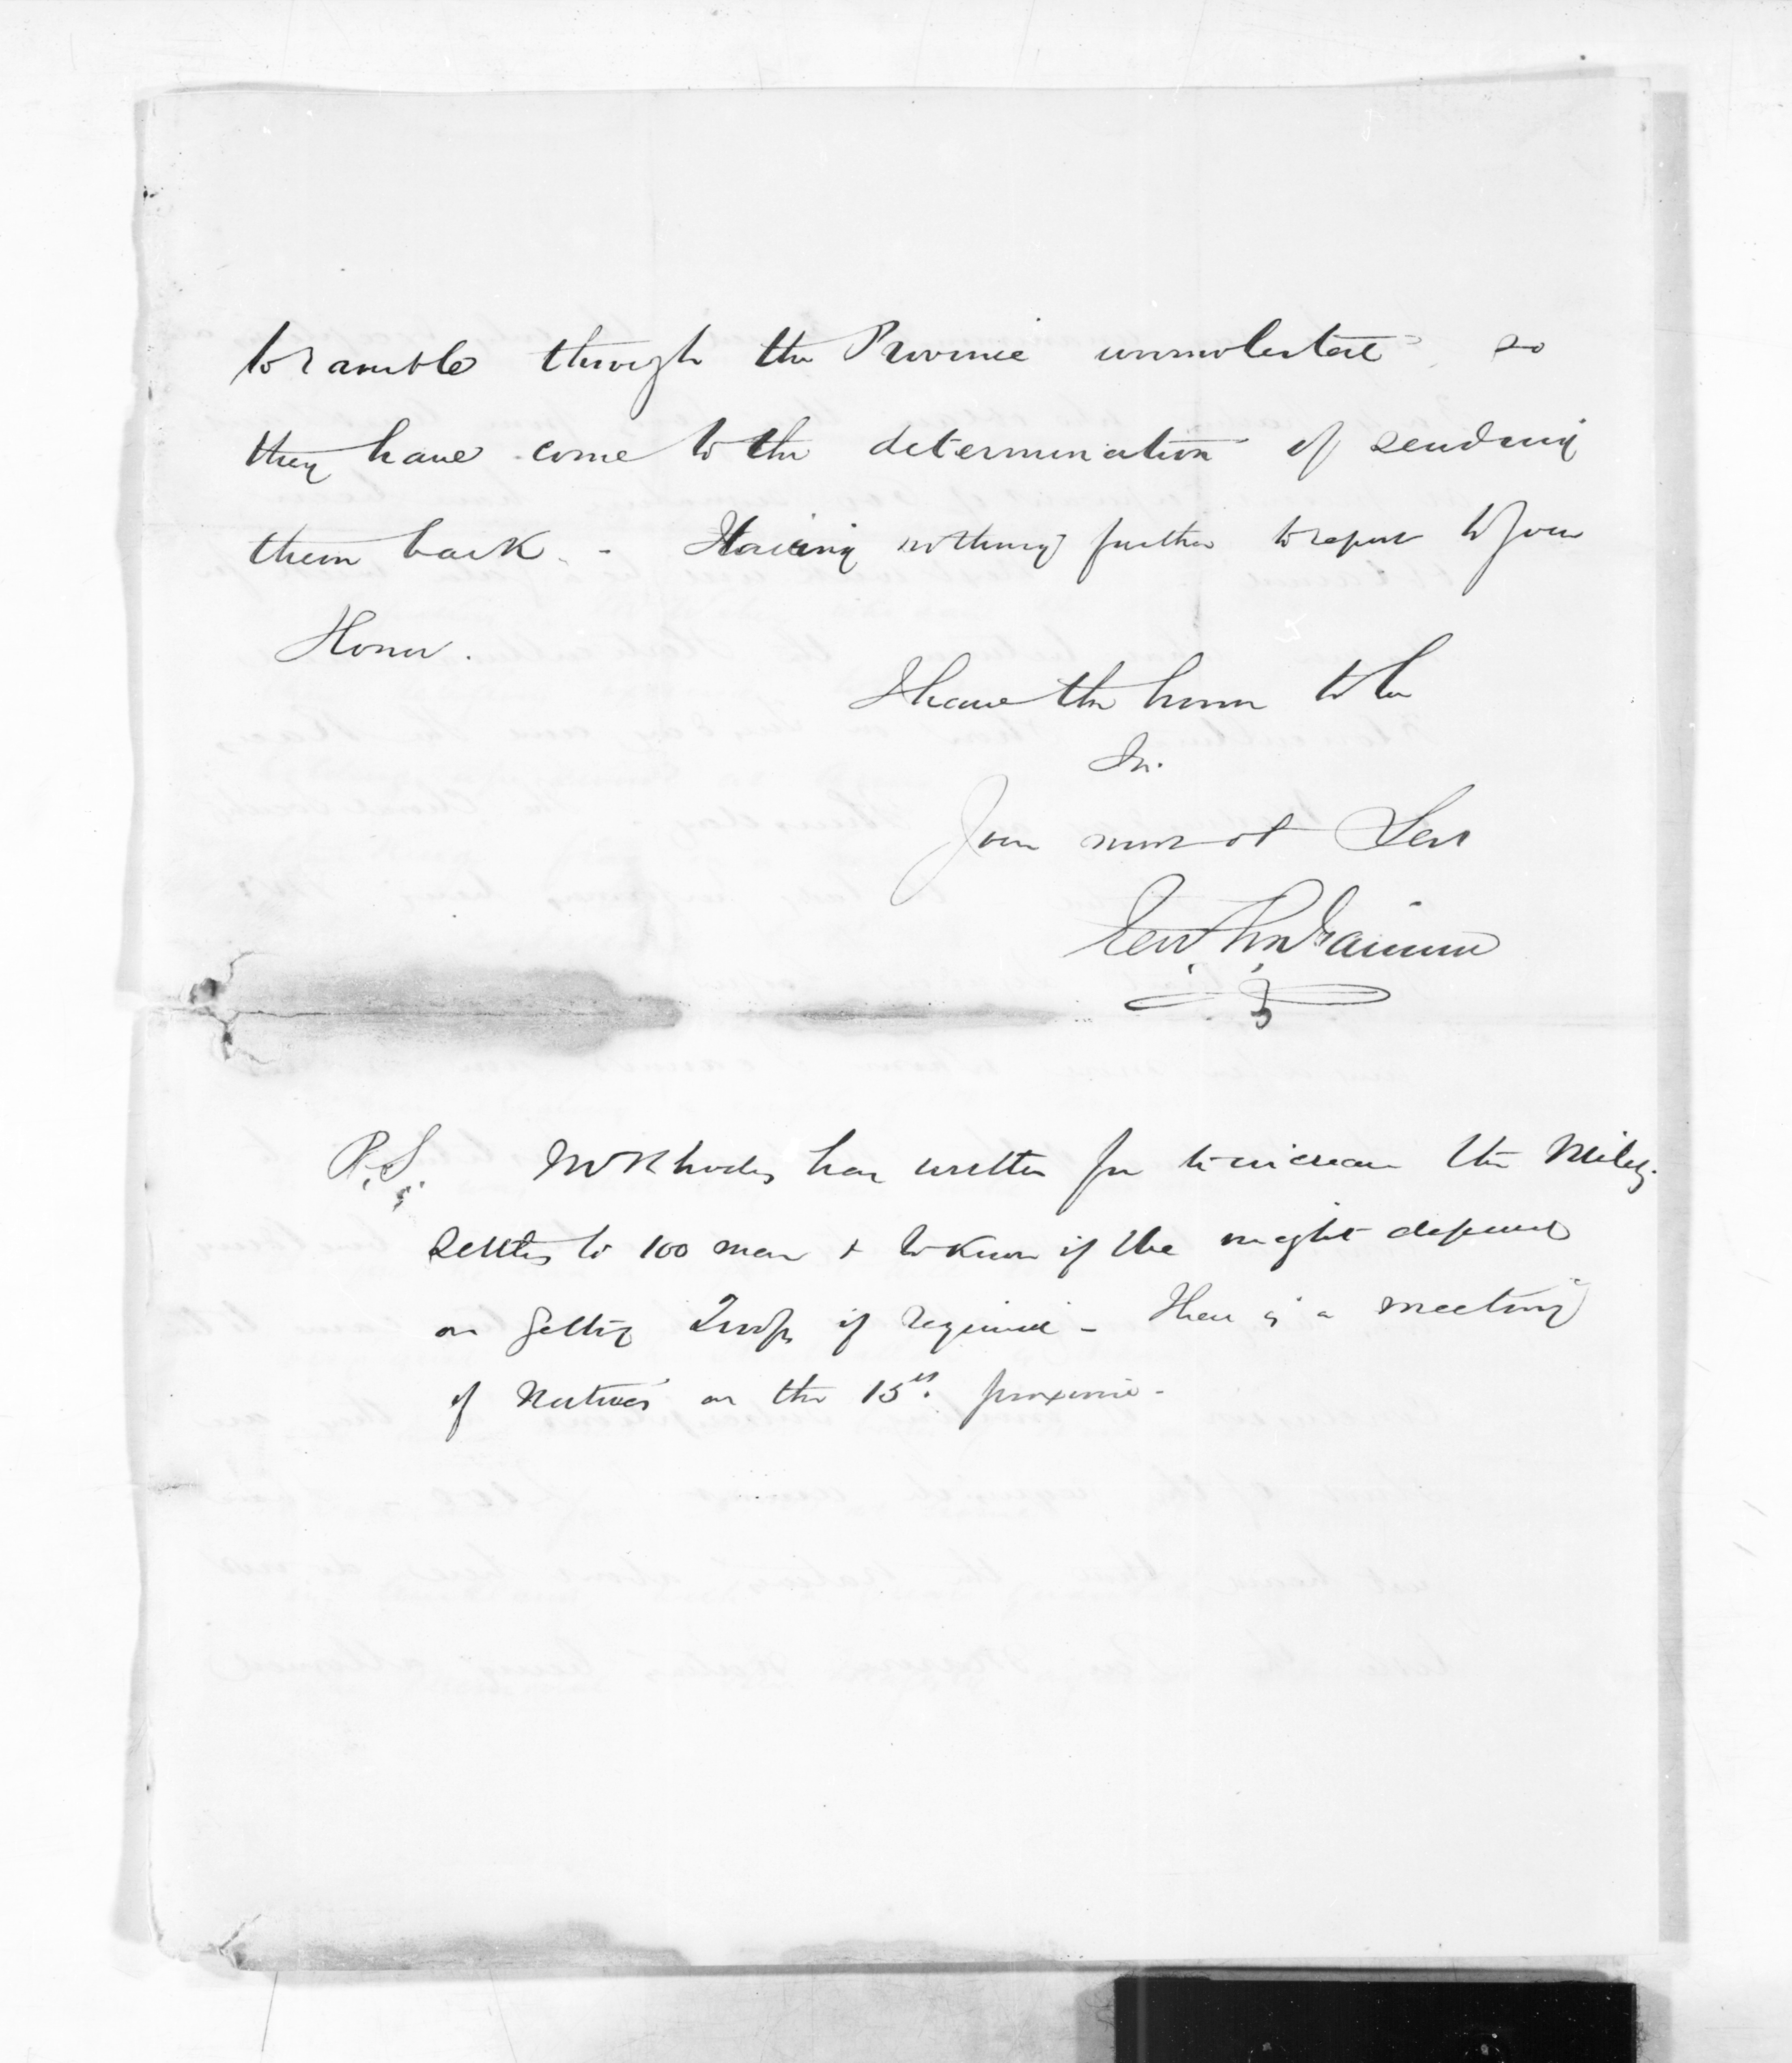 to ramble through the Province unmolested so
they have come to the determination of sending
them back. - Having nothing further to report to Your
Honor.
I have the honor to be
Sir.
Your most ob Serv
P.S. Mr Rhodes has written for to increase the Mility.
Settlers to 100 men & to know if the might depend
on getting Troops if required - There is a meeting
of Natives on the 15th. proximo -